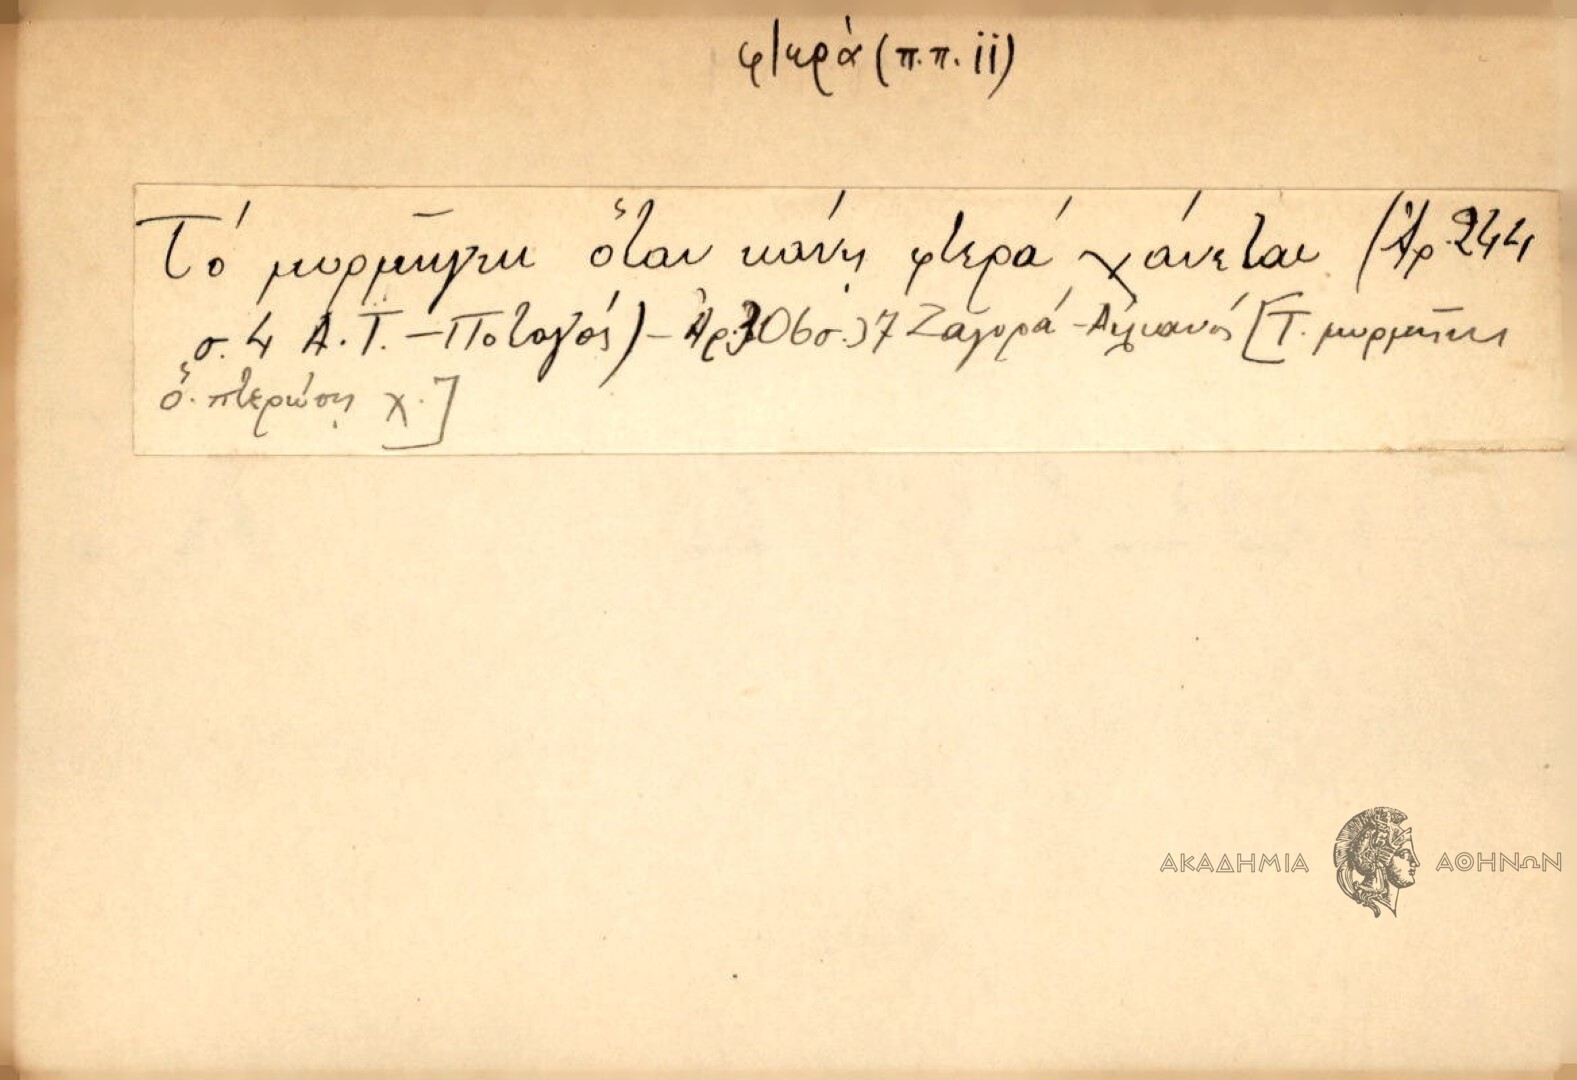 φτερά (π.π. ii)
Τό μυρμῆγκι ὅταν κάνῃ φτερά χάνεται (Ἀρ. 244
σ. 4 Α.Τ. – Ποταγός) – Ἀρ. 306 σ. 37 Ζαγορά – [Τ. μυρμῆγκι
ὅ. πτερώσῃ χ.]
ΑΚΑΔΗΜΙΑ ΑΘΗΝΩΝ